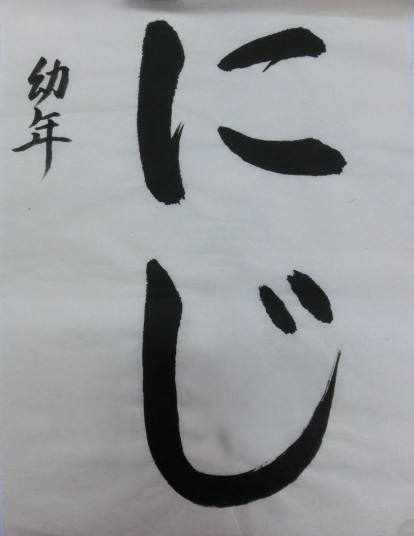 にじ
幼年